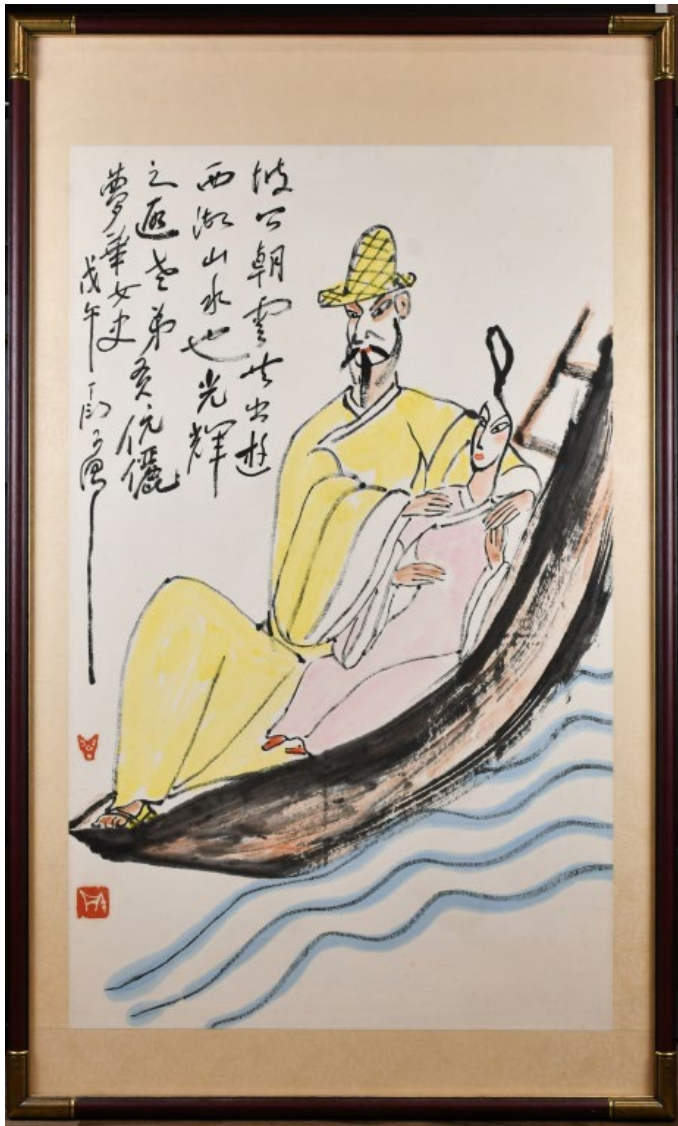 坡公朝雲共出遊
西湖山水也光輝
之老弟賢伉儷
夢華女史
戊午丁衍庸